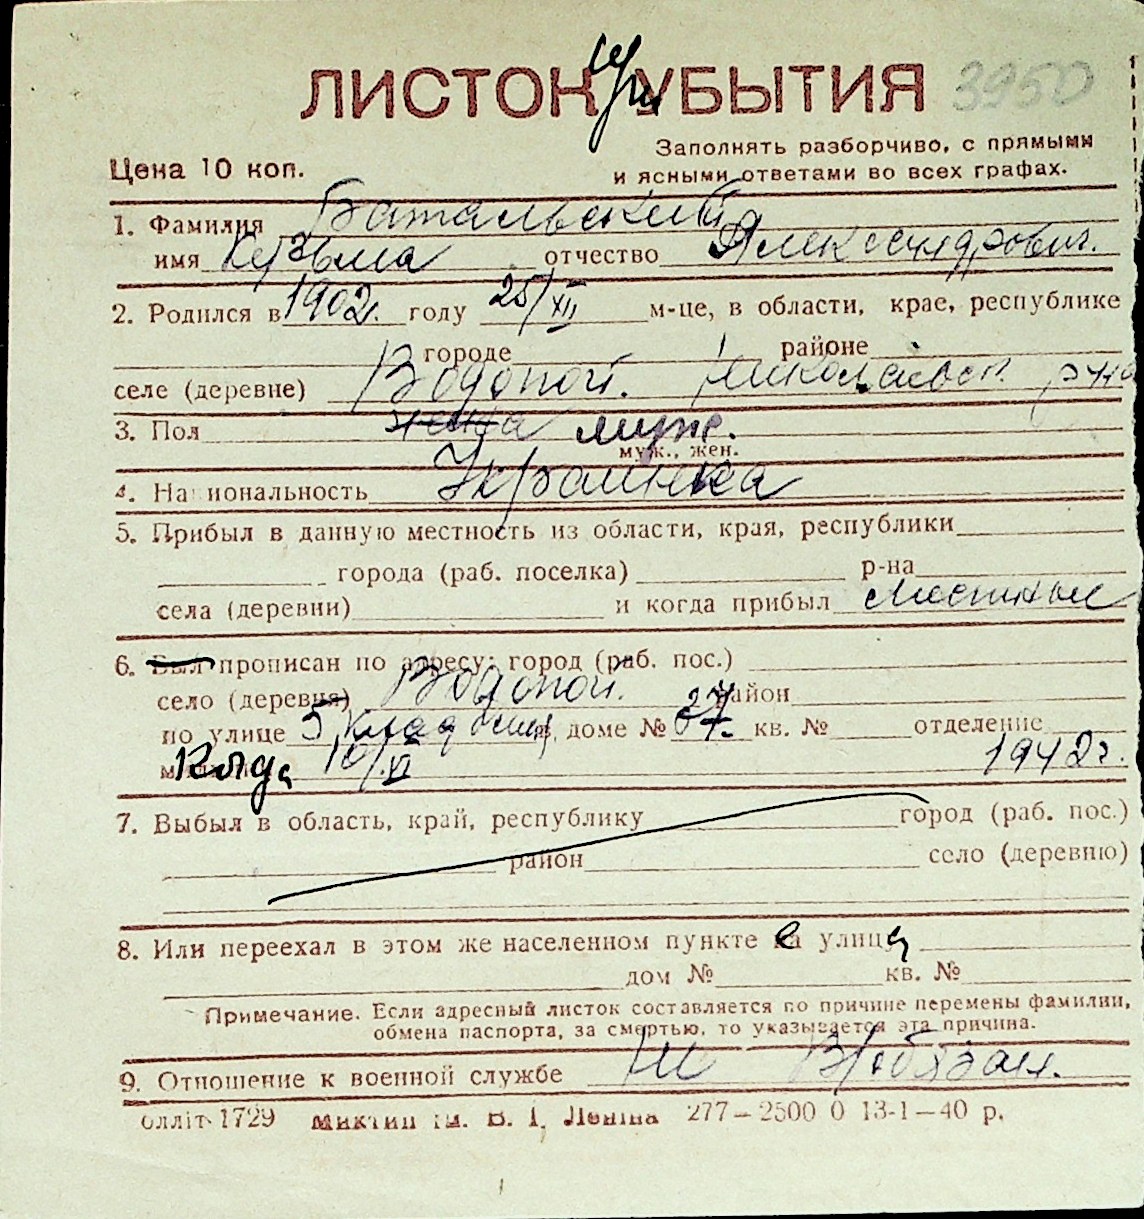 ЛИСТОК при УБЫТИЯ 3950
Цена 10 коп.
Заполнять разборчиво, с прямыми
и ясными ответами во всех графах.
1. Фамилия Батальский
имя Кузьма отчество Александрович.
2. Родился в 1902. году 25/XII м-це, в области, крае, республике
городе районе
селе (деревне) Водопой. Николаевск. р-на
3. Пол женска муж.
муж., жен.
4. Национальность Украинка
5. Прибыл в данную местность из области, края, республики
города (раб. поселка) р-на
села (деревни) и когда прибыл местный
6. Был прописан по адресу: город (раб. пос.)
село (деревня) Водопой. район
по улице 5 доме № 67. 27 кв. № отделение
Когда 10/VI 1942г.
7. Выбыл в область, край, республику город (раб. пос.)
район село (деревню)
8. Или переехал в этом же населенном пункте с улицы
дом № кв. №
Примечание. Если адресный листок составляется по причине перемены фамилии,
обмена паспорта, за смертью, то указывается эта причина.
9. Отношение к военной службе Не В/обязан.
олліт 1729 ім. В. І. Леніна 277—2500 0 13-1—40 р.